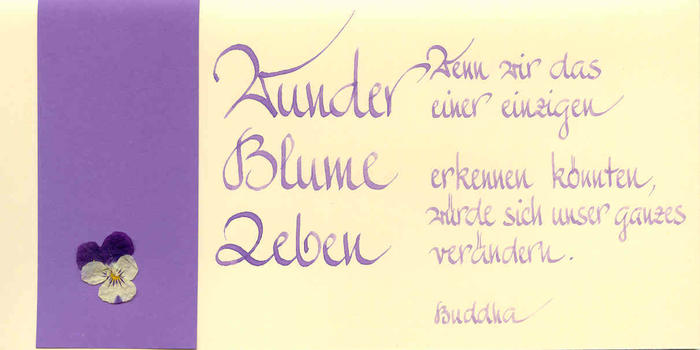 Wenn wir das
Wunder
einer einzigen
Blume
erkennen könnten,
würde sich unser ganzes
Leben
verändern.
Buddha